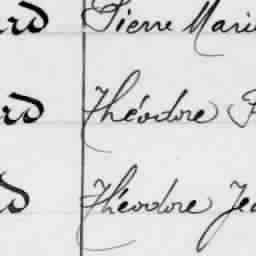 rd Pierre Mari
rd Théodore
d Théodore Je